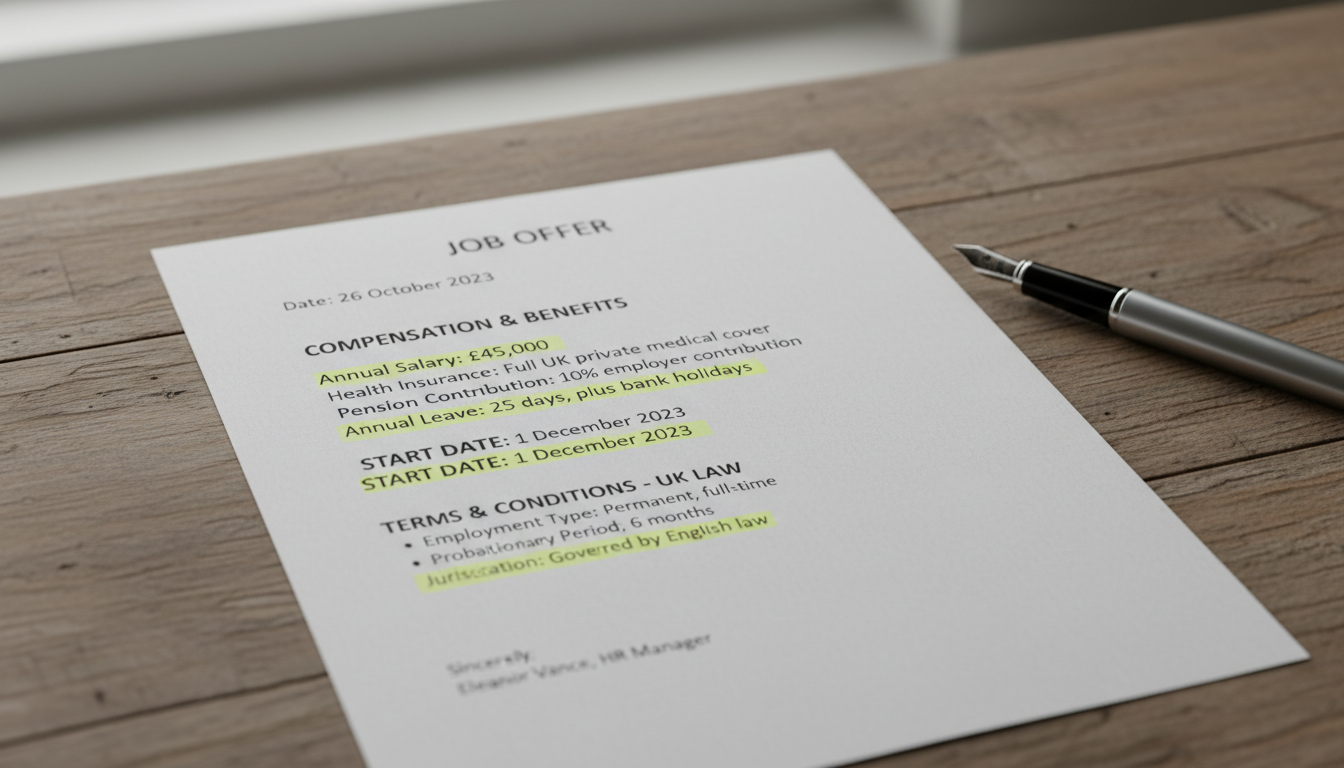 JOB OFFER
Date: 26 October 2023
COMPENSATION & BENEFITS
Annual Salary: £45,000
Health Insurance: Full UK private medical cover
Pension Contribution: 10% employer contribution
Annual Leave: 25 days, plus bank holidays
START DATE: 1 December 2023
START DATE: 1 December 2023
TERMS & CONDITIONS - UK LAW
• Employment Type: Permanent, full-time
• Probationary Period, 6 months
Governed by English law
Sincerely,
Eleanor Vance, HR Manager